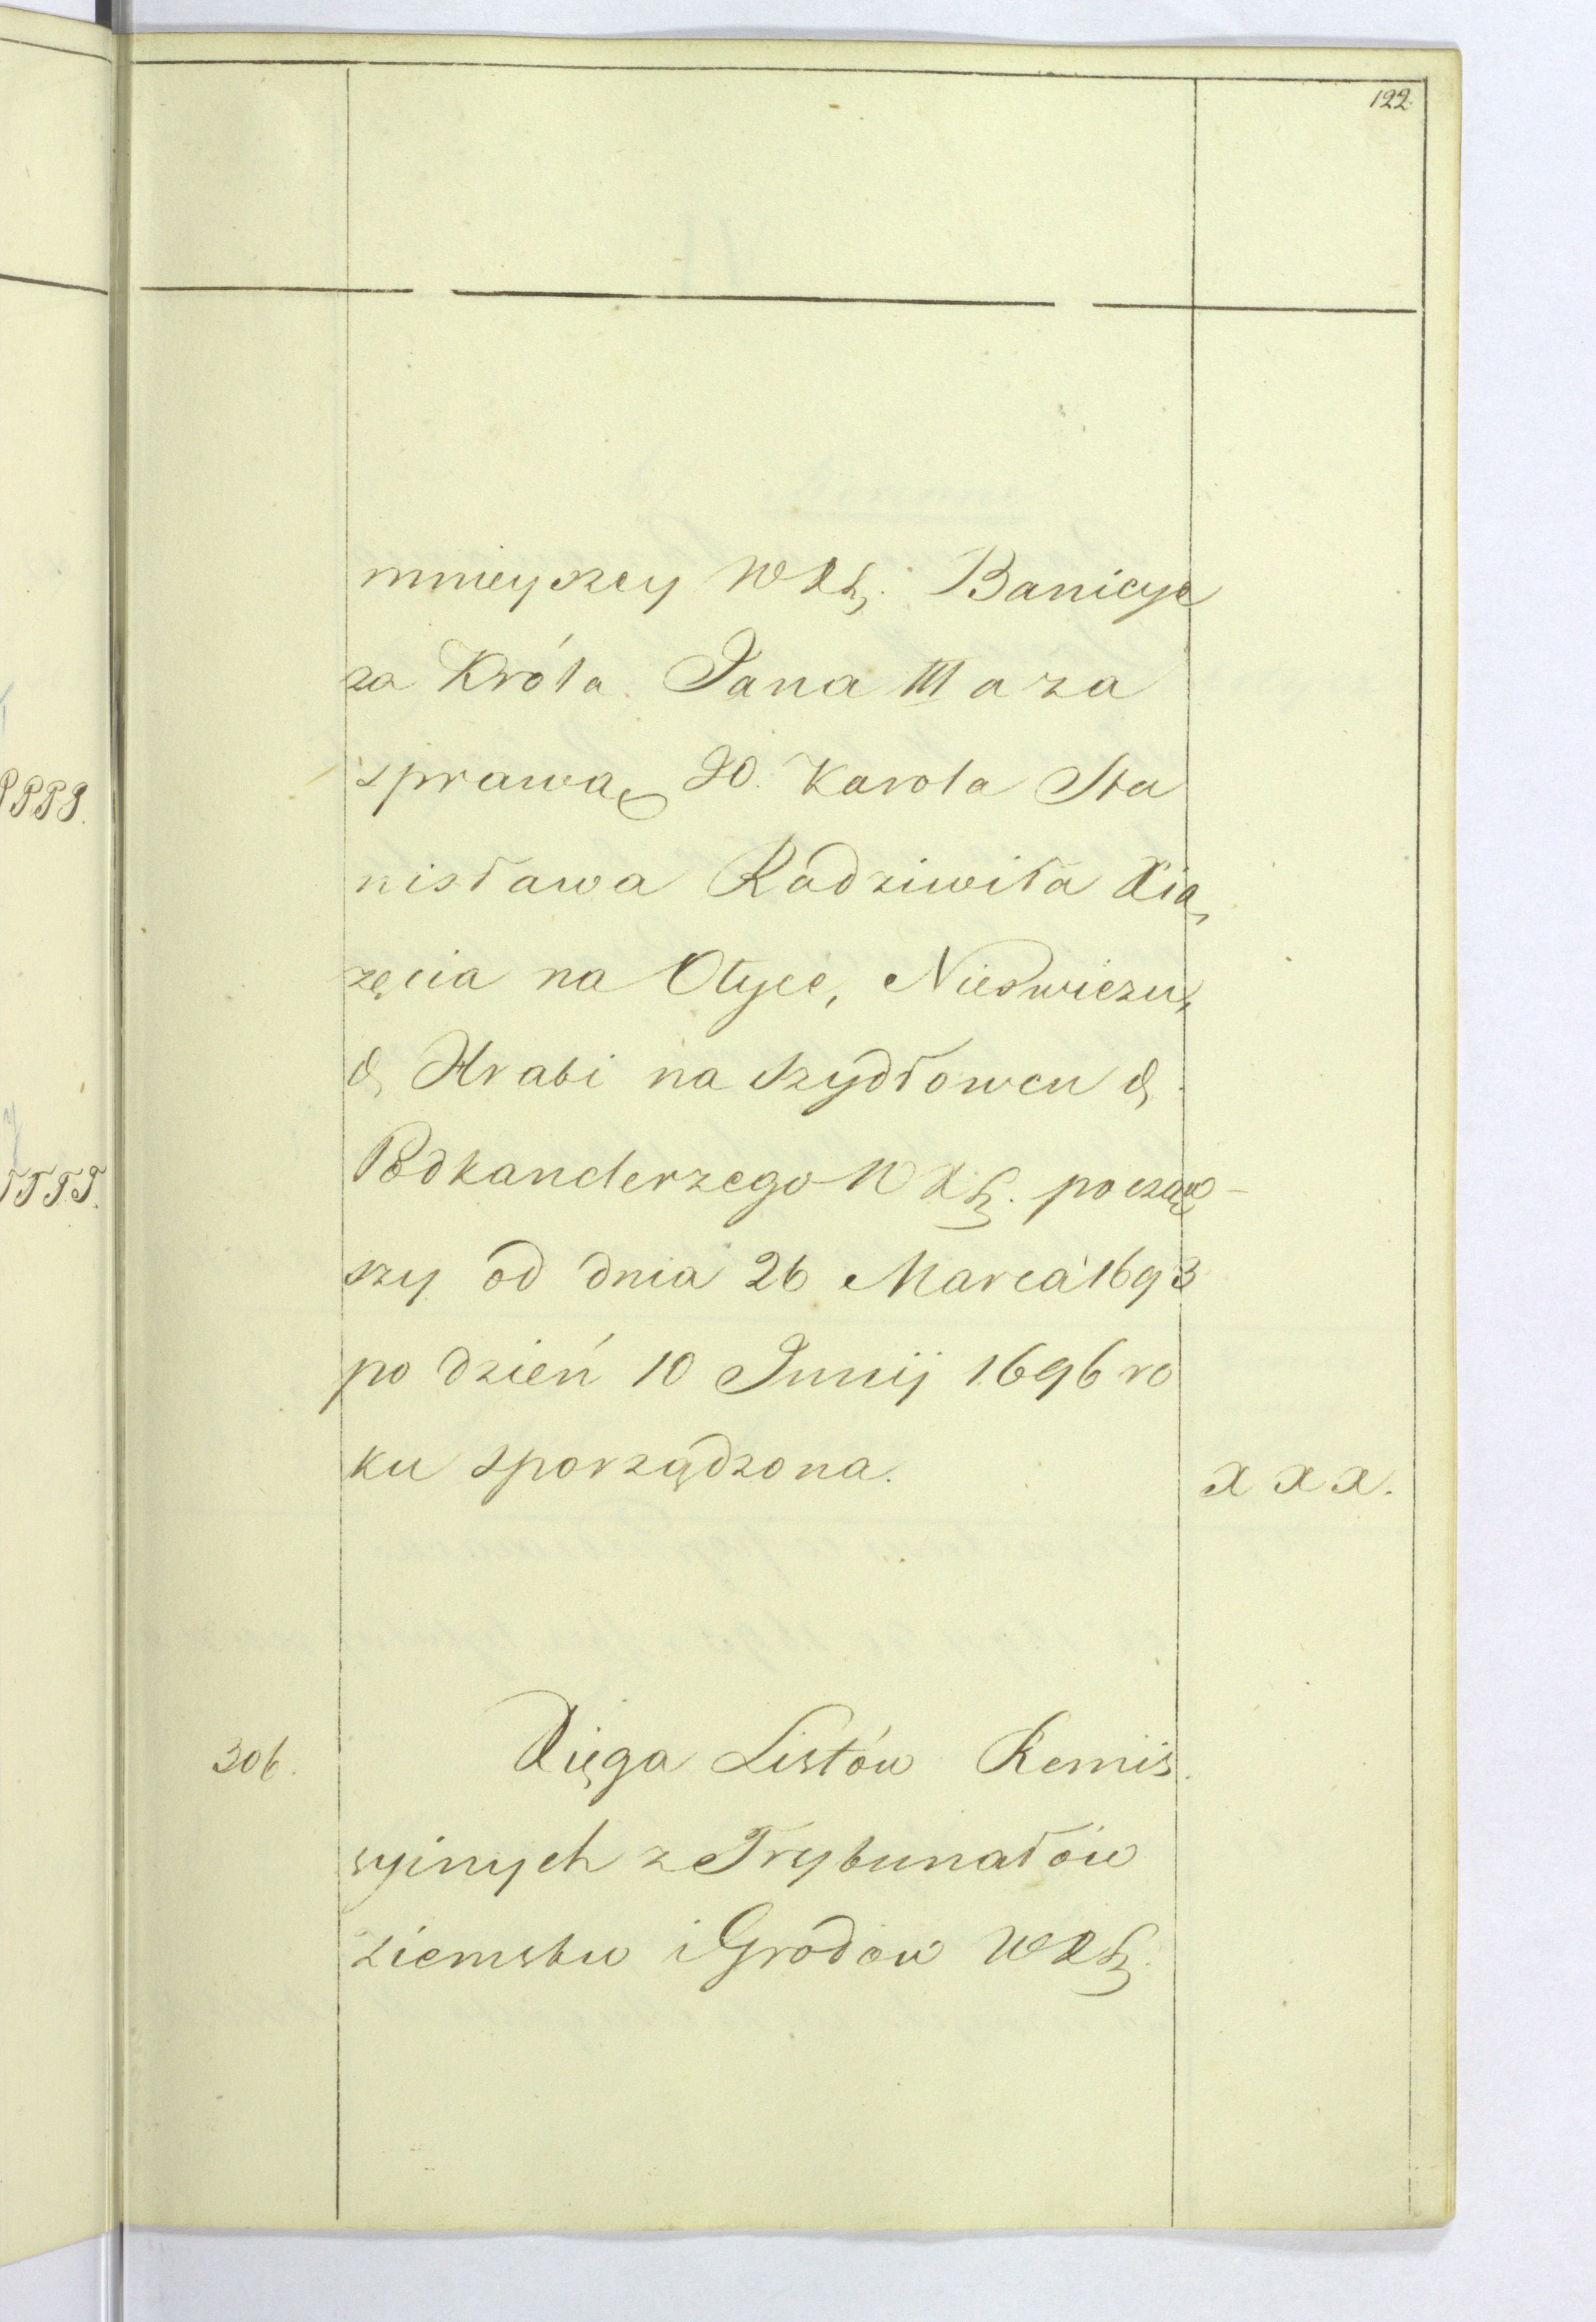 122
mnieyszey WXL. Banicye
za Króla Jana III a za
sprawą JO. Karola Sta
nisława Radziwiła Xią
żęcia na Ołyce, Nieświezu,
& Hrabi na Szydłowcu &
Podkanclerzego WXL. począw-
szy od dnia 26 Marca 1693
po dzień 10 Junij 1696 ro
ku sporządzona.
XXX.
306. Xięga Listów Remis
syinych z Trybunałów
Ziemstw i Grodów WXL.